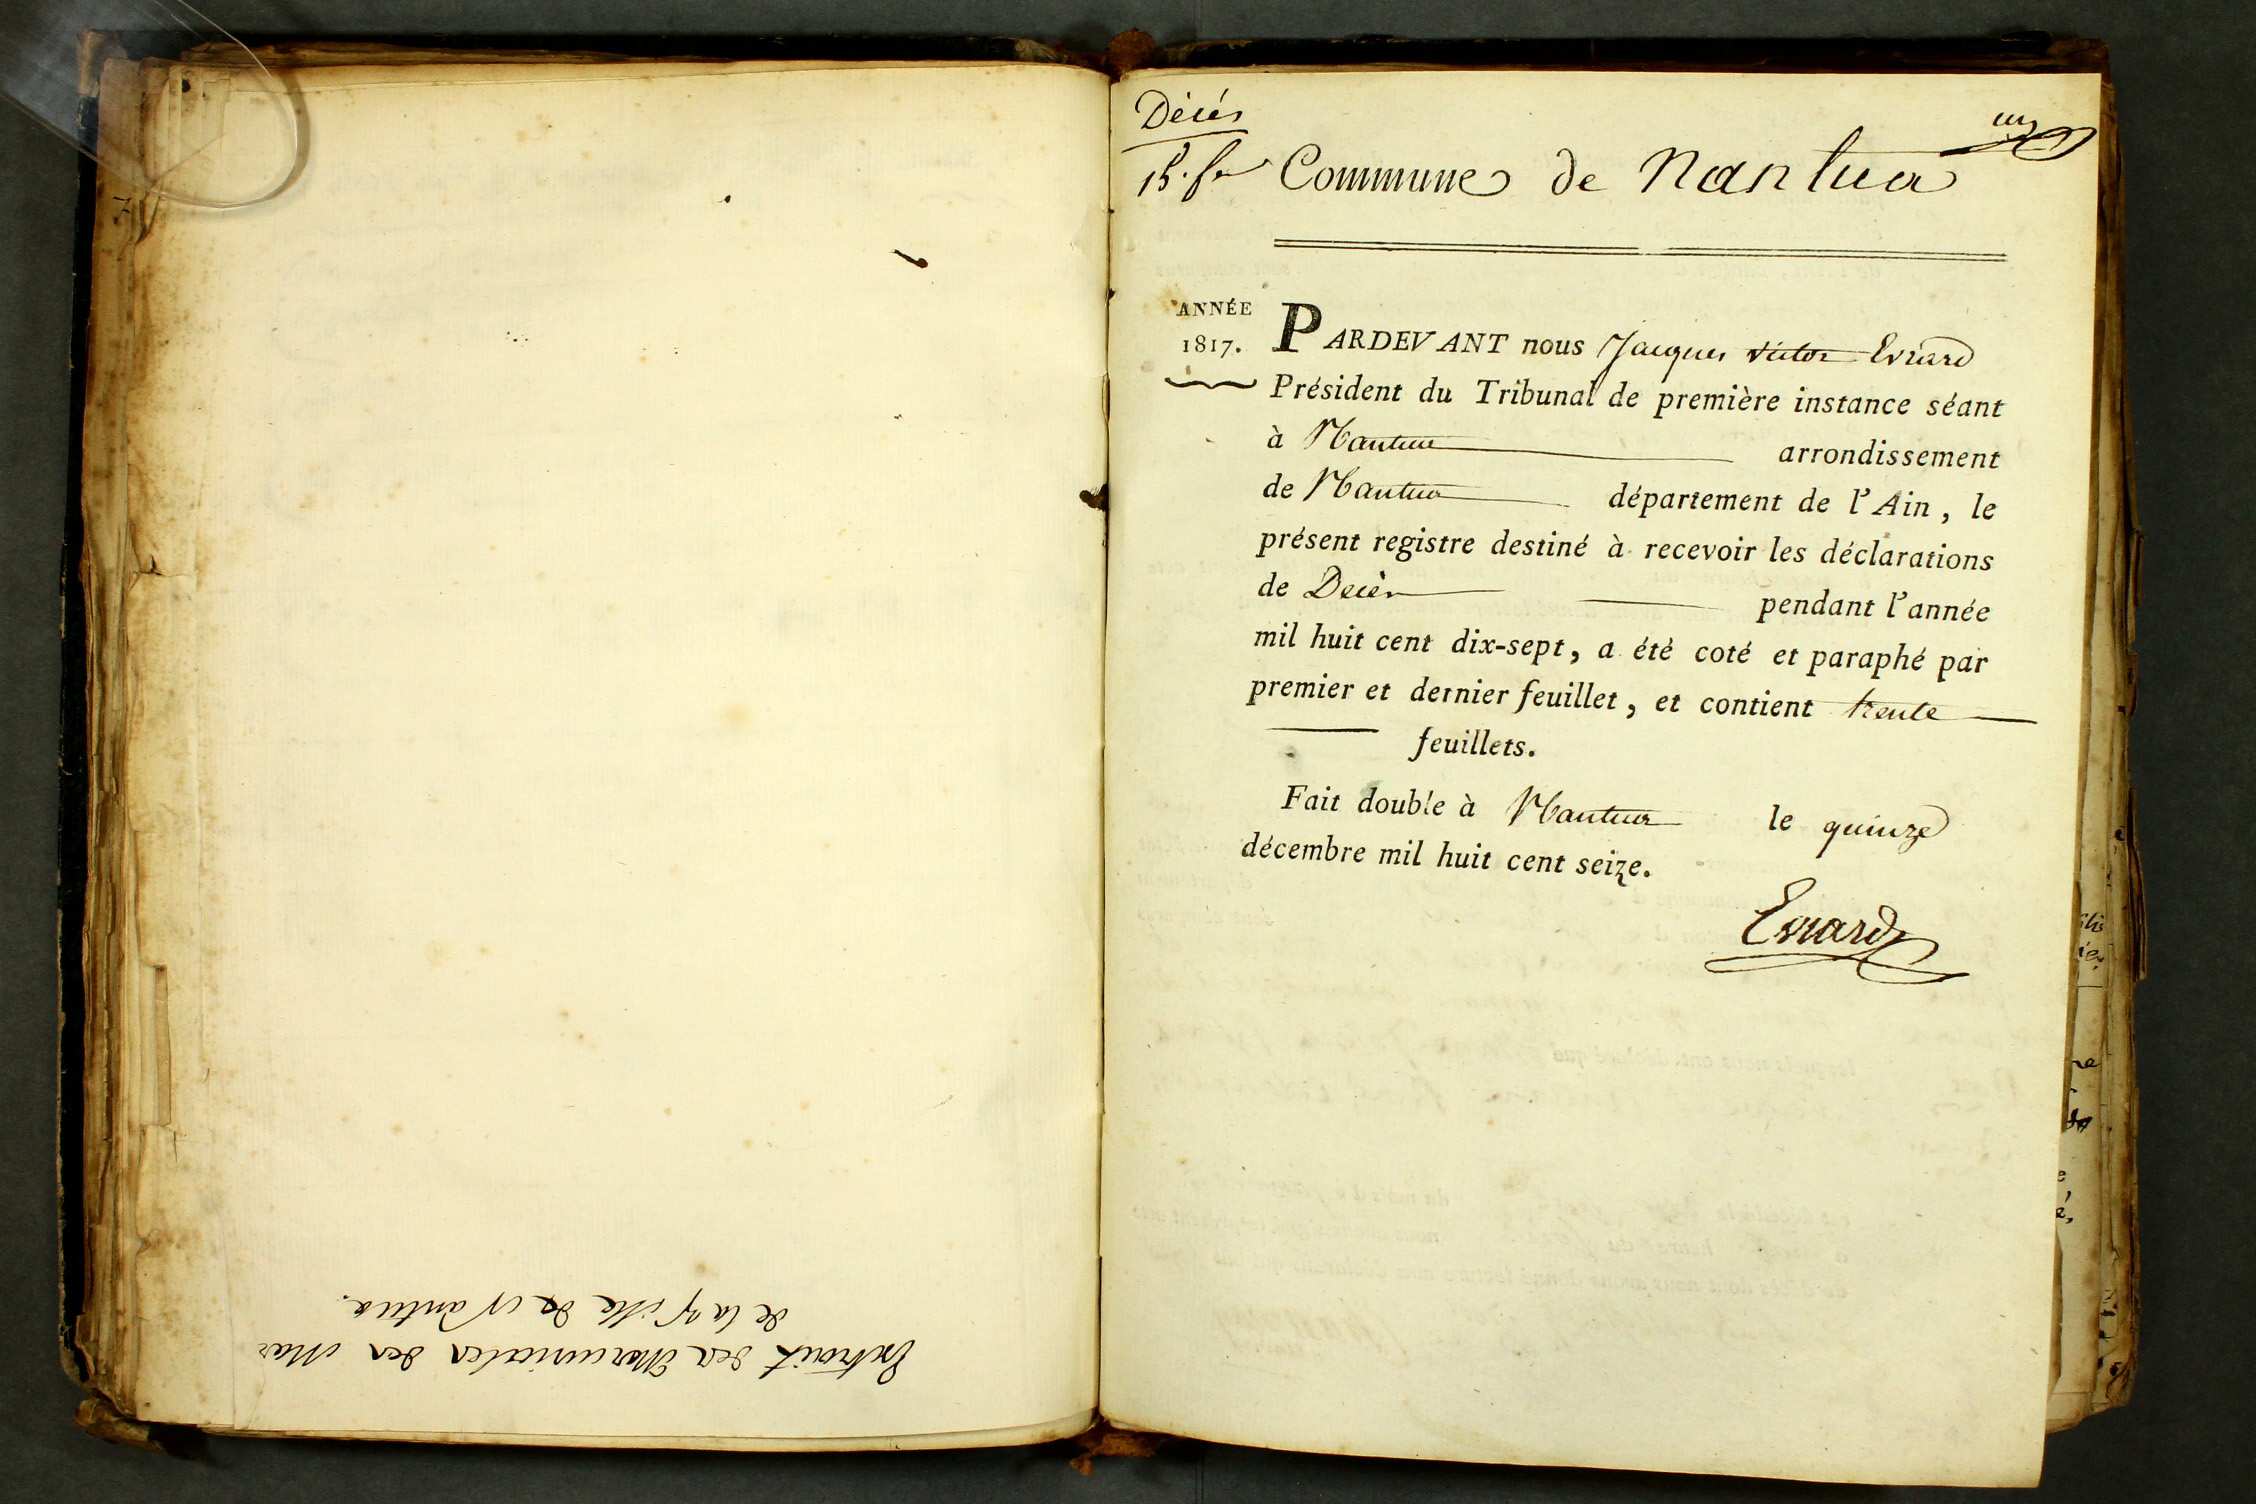 Extrait des Mercuriales des Mar
de la Ville de Nantua.
Décés
un
Commune de Nantua
ANNÉE
1817.
PARDEVANT nous Jacques victor Evrard
Président du Tribunal de première instance séant
à Nantua arrondissement
de Nantua département de l'Ain, le
présent registre destiné à recevoir les déclarations
de Decès pendant l'année
mil huit cent dix-sept, a été coté et paraphé par
premier et dernier feuillet, et contient trente
feuillets.
Fait double à Nantua le quinze
décembre mil huit cent seize.
Evrard